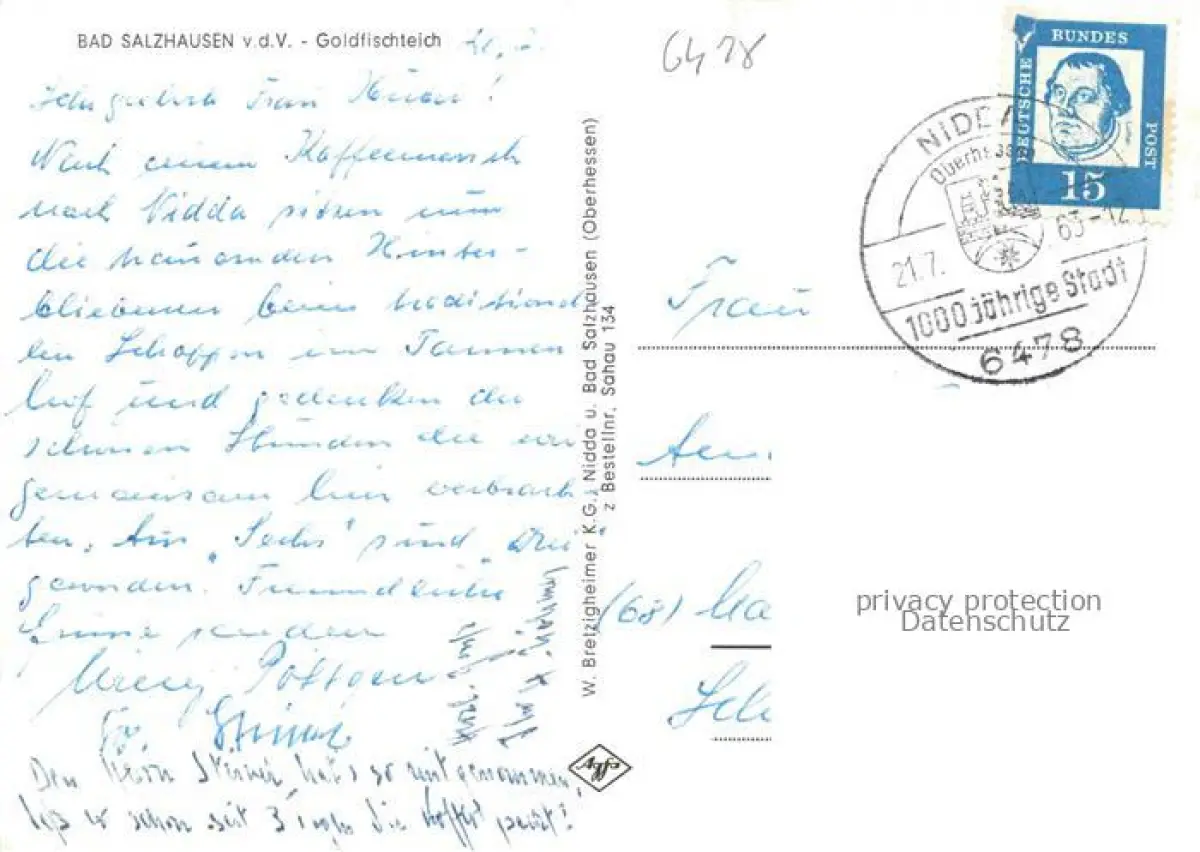 BAD SALZHAUSEN v.d.V. - Goldfischteich
6478
Frau
Nach einem Kaffeemarsch
nach Nidda sitzen nun
die trauernden Hinter-
bliebenen beim tradition
len Schoppen im Tannen
hof und gedenken der
schönen Stunden die wir
gemeinsam hier verbrach
ten. Aus "Sechs" sind "Drei"
geworden. Freundliche
Grüße senden
Pöttgen
Den Herrn Steiner hat's so mitgenommen,
schon seit 3 die Koffer packt!
W. Bretzigheimer K.G., Nidda u. Bad Salzhausen (Oberhessen)
z Bestellnr. Sahau 134
Agfa
DEUTSCHE
BUNDES
POST
15
NIDDA
Oberhess
21.7.
63-12
1000jährige Stadt
6478
Frau
(68) Ma
Sch
privacy protection
Datenschutz